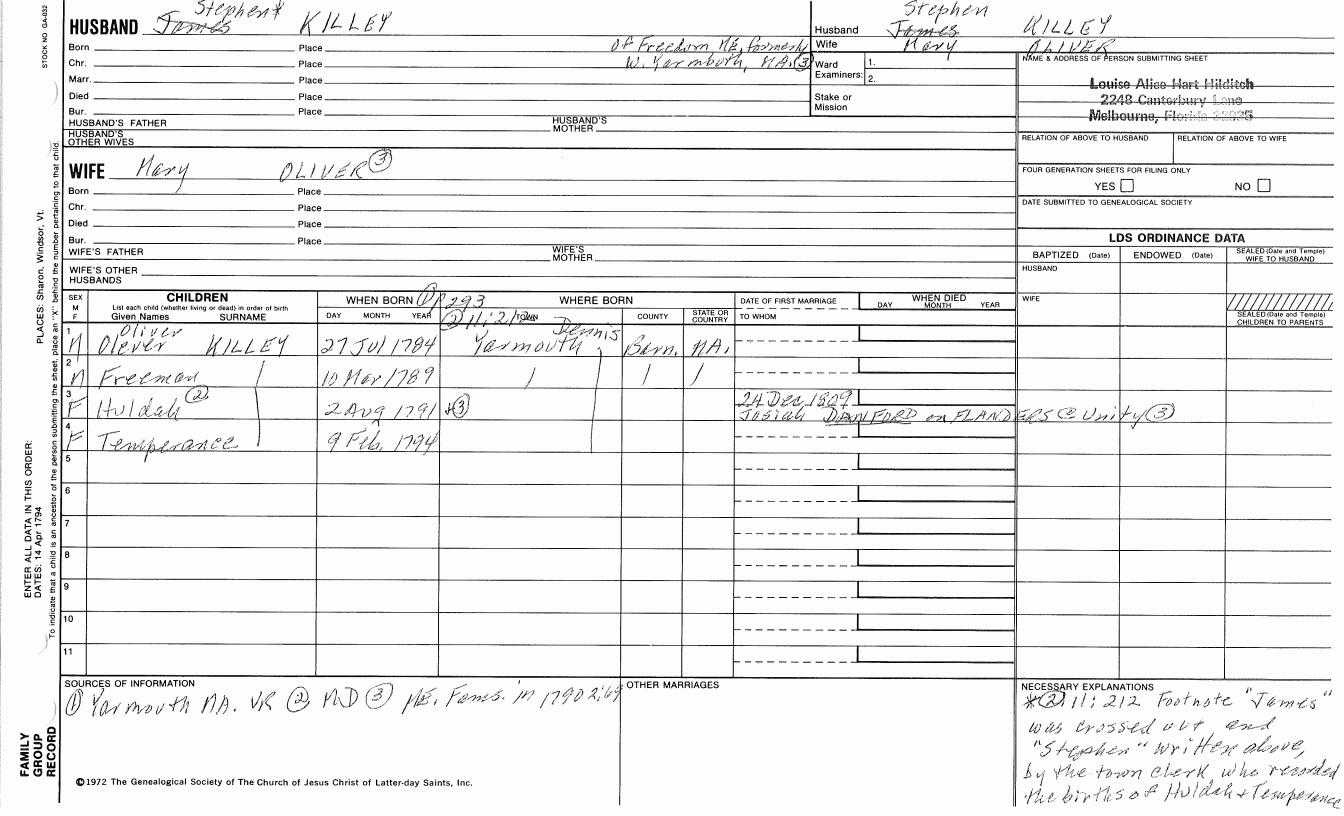 STOCK NO GA-032
Stephen*
HUSBAND James KILLEY
Born Place of Freedom ME, formerly
Chr. Place W. Yarmouth, MA. (3)
Marr. Place
Died Place
Bur. Place
HUSBAND'S FATHER HUSBAND'S MOTHER
HUSBAND'S OTHER WIVES
Stephen
Husband James KILLEY
Wife Mary OLIVER
Ward Examiners: 1.
2.
Stake or Mission
NAME & ADDRESS OF PERSON SUBMITTING SHEET
Louise Alice Hart Hilditch
2248 Canterbury Lane
Melbourne, Florida
RELATION OF ABOVE TO HUSBAND RELATION OF ABOVE TO WIFE
FOUR GENERATION SHEETS FOR FILING ONLY
YES NO
DATE SUBMITTED TO GENEALOGICAL SOCIETY
WIFE Mary OLIVER (3)
Born Place
Chr. Place
Died Place
Bur. Place
WIFE'S FATHER WIFE'S MOTHER
WIFE'S OTHER HUSBANDS
LDS ORDINANCE DATA
BAPTIZED (Date) ENDOWED (Date) SEALED (Date and Temple) WIFE TO HUSBAND
HUSBAND
WIFE
SEALED (Date and Temple) CHILDREN TO PARENTS
SEX M F
CHILDREN
List each child (whether living or dead) in order of birth
Given Names SURNAME
WHEN BORN (1) p 293 WHERE BORN
DAY MONTH YEAR (2) 11:212 TOWN COUNTY STATE OR COUNTRY
DATE OF FIRST MARRIAGE
TO WHOM
WHEN DIED
DAY MONTH YEAR
Oliver Dennis
1 M Olever KILLEY 27 Jul 1784 Yarmouth, Barn. MA.
2 M Freeman 10 Mar 1789
3 F Huldah (2) 2 Aug 1791 +(3) 24 Dec 1809
Josiah DANFORD on FLANDERS @ Unity (3)
4 F Temperance 9 Feb. 1794
5
6
7
8
9
10
11
SOURCES OF INFORMATION
(1) Yarmouth MA. VR (2) MD (3) ME. Fams. in 1790 2:69
OTHER MARRIAGES
NECESSARY EXPLANATIONS
*(2) 11:212 Footnote "James"
was crossed out and
"Stephen" written above,
by the town clerk who recorded
the births of Huldah + Temperance
©1972 The Genealogical Society of The Church of Jesus Christ of Latter-day Saints, Inc.
PLACES: Sharon, Windsor, Vt.
ENTER ALL DATA IN THIS ORDER:
DATES: 14 Apr 1794
To indicate that a child is an ancestor of the person submitting the sheet, place an "X" behind the number pertaining to that child
FAMILY
GROUP
RECORD